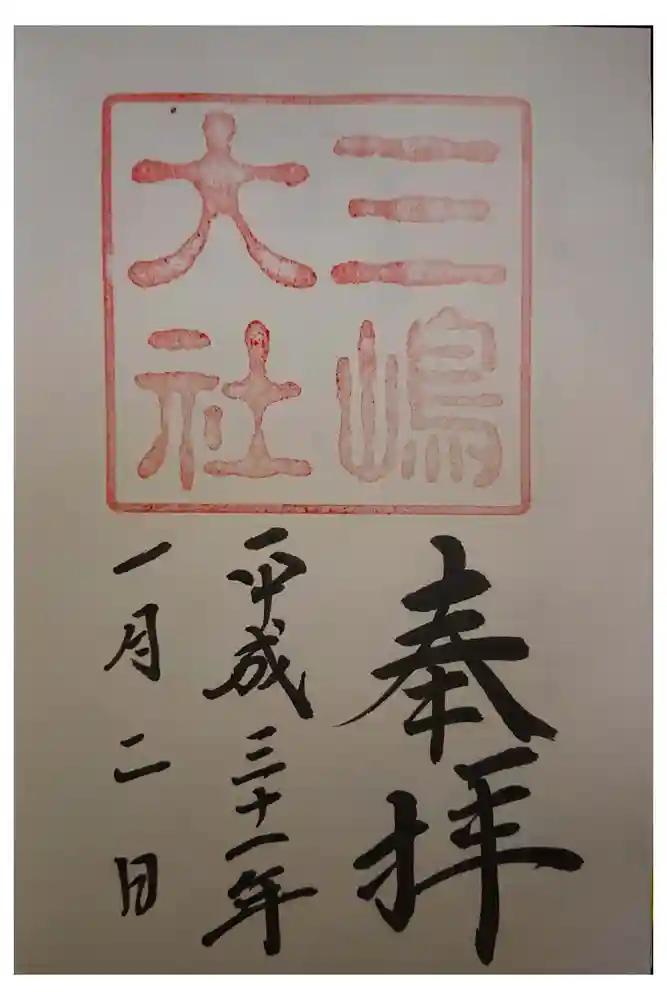 三嶋
大社
奉拝
平成三十一年
一月二日